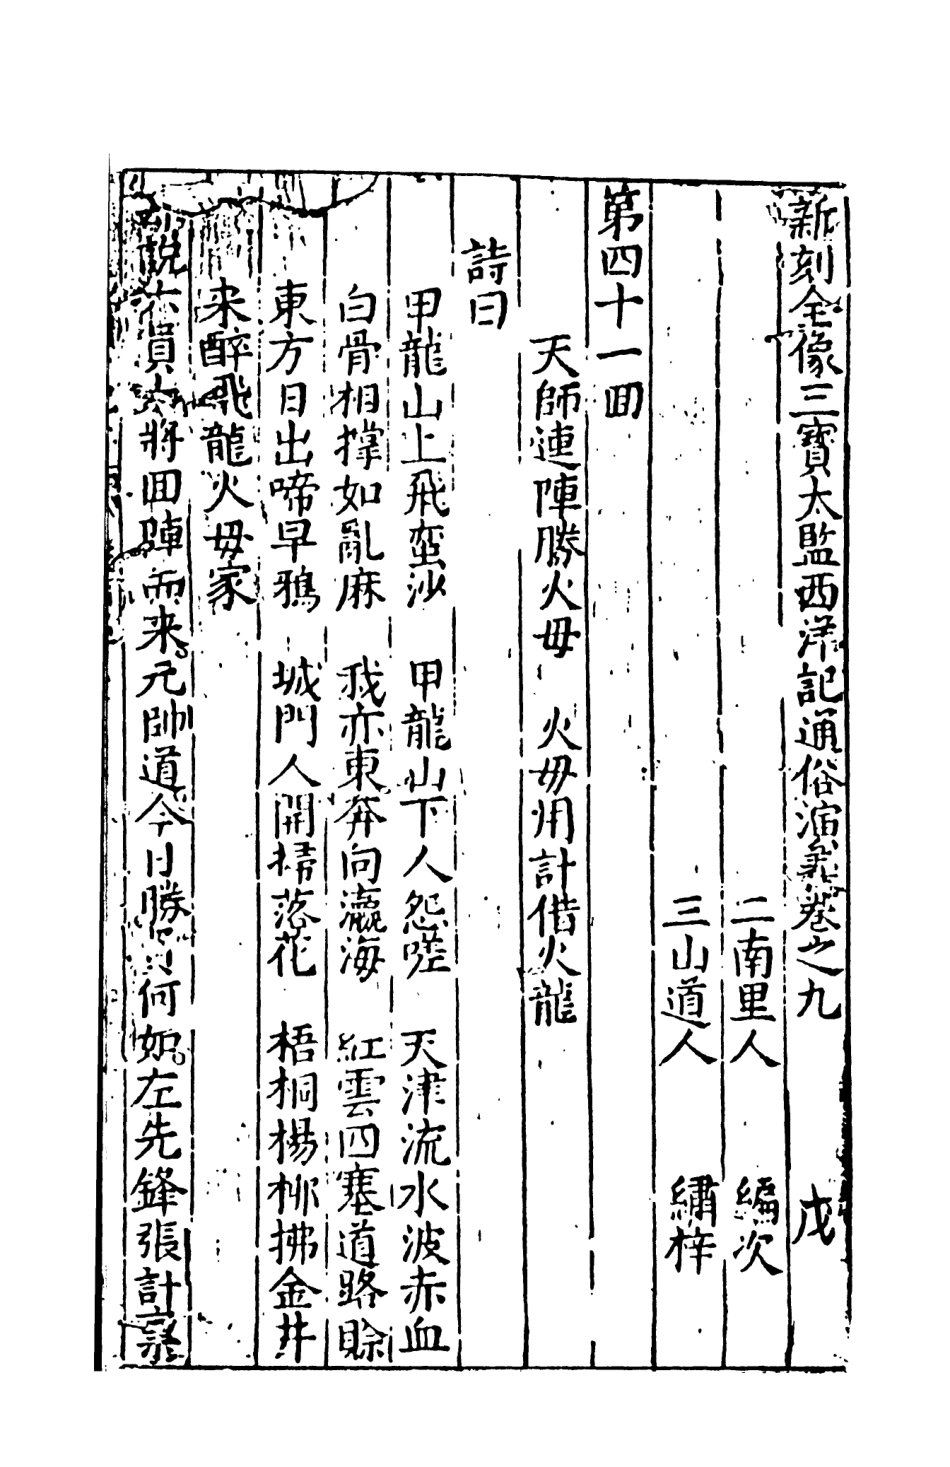 新刻全像三寶太監西洋記通俗演義卷之九　戊
二南里人　編次
三山道人　繡梓
第四十一囬
天師連陣勝火母　火母用計借火龍
詩曰
甲龍山上飛蛮沙　甲龍山下人怨嗟　天津流水波赤血
白骨相撐如亂麻　我亦東奔向瀛海　紅雲四塞道路賒
東方日出啼早鴉　城門人開掃落花　梧桐楊柳拂金井
来醉飛龍火母家
說六員大將囬陣而来元帥道今日勝負何如左先鋒張計